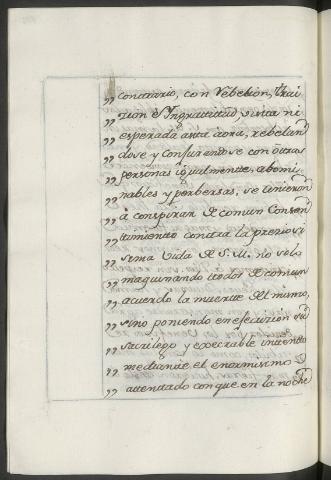 „ contrario, con Rebelion, trai
„ zion è Yngratitud, vista ni
„ esperada asta aora, rebelan
„ dose, y Conjurandose con otras
„ personas igualmente abomi
„ nables y perbersas, se unieron
„ â conspirar de comun Consen
„ timiento contra la preziosi
„ sima Vida de S.M. no solo
„ maquinando todos de comun
„ acuerdo la muerte del mismo,
„ sino poniendo en efecuzion su
„ sacrilego y execrable intento
„ mediante el enormisimo
„ attentado con que en la noche